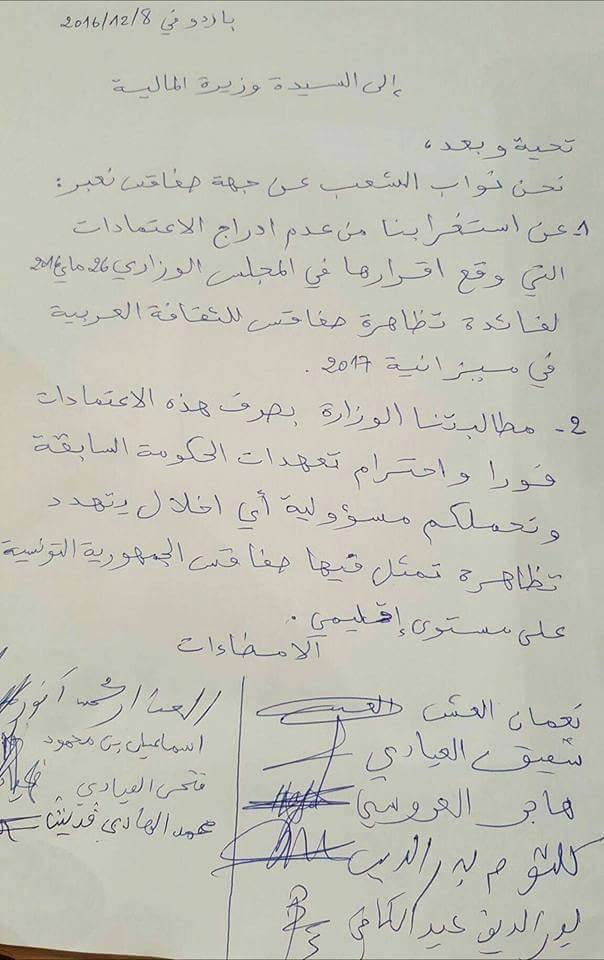 باردو في 2016/12/8
إلى السيدة وزيرة المالية
تحية وبعد،
نحن نواب الشعب عن جهة صفاقس نعبر:
1- عن استغرابنا من عدم ادراج الاعتمادات
التي وقع اقرارها في المجلس الوزاري 26 ماي 2016
لفائدة تظاهرة صفاقس للثقافة العربية
في ميزانية 2017.
2- مطالبتنا الوزارة بصرف هذه الاعتمادات
فورا واحترام تعهدات الحكومة السابقة
ونحملكم مسؤولية أي اخلال يتهدد
تظاهرة تمثل فيها صفاقس الجمهورية التونسية
على مستوى إقليمي.
الامضاءات
نعمان العش
شفيق العيادي
هاجر العروسي
كلثوم بدر الدين
بدر الدين عبد الكافي
اسماعيل بن محمود
فتحي العيادي
محمد الهادي قديش